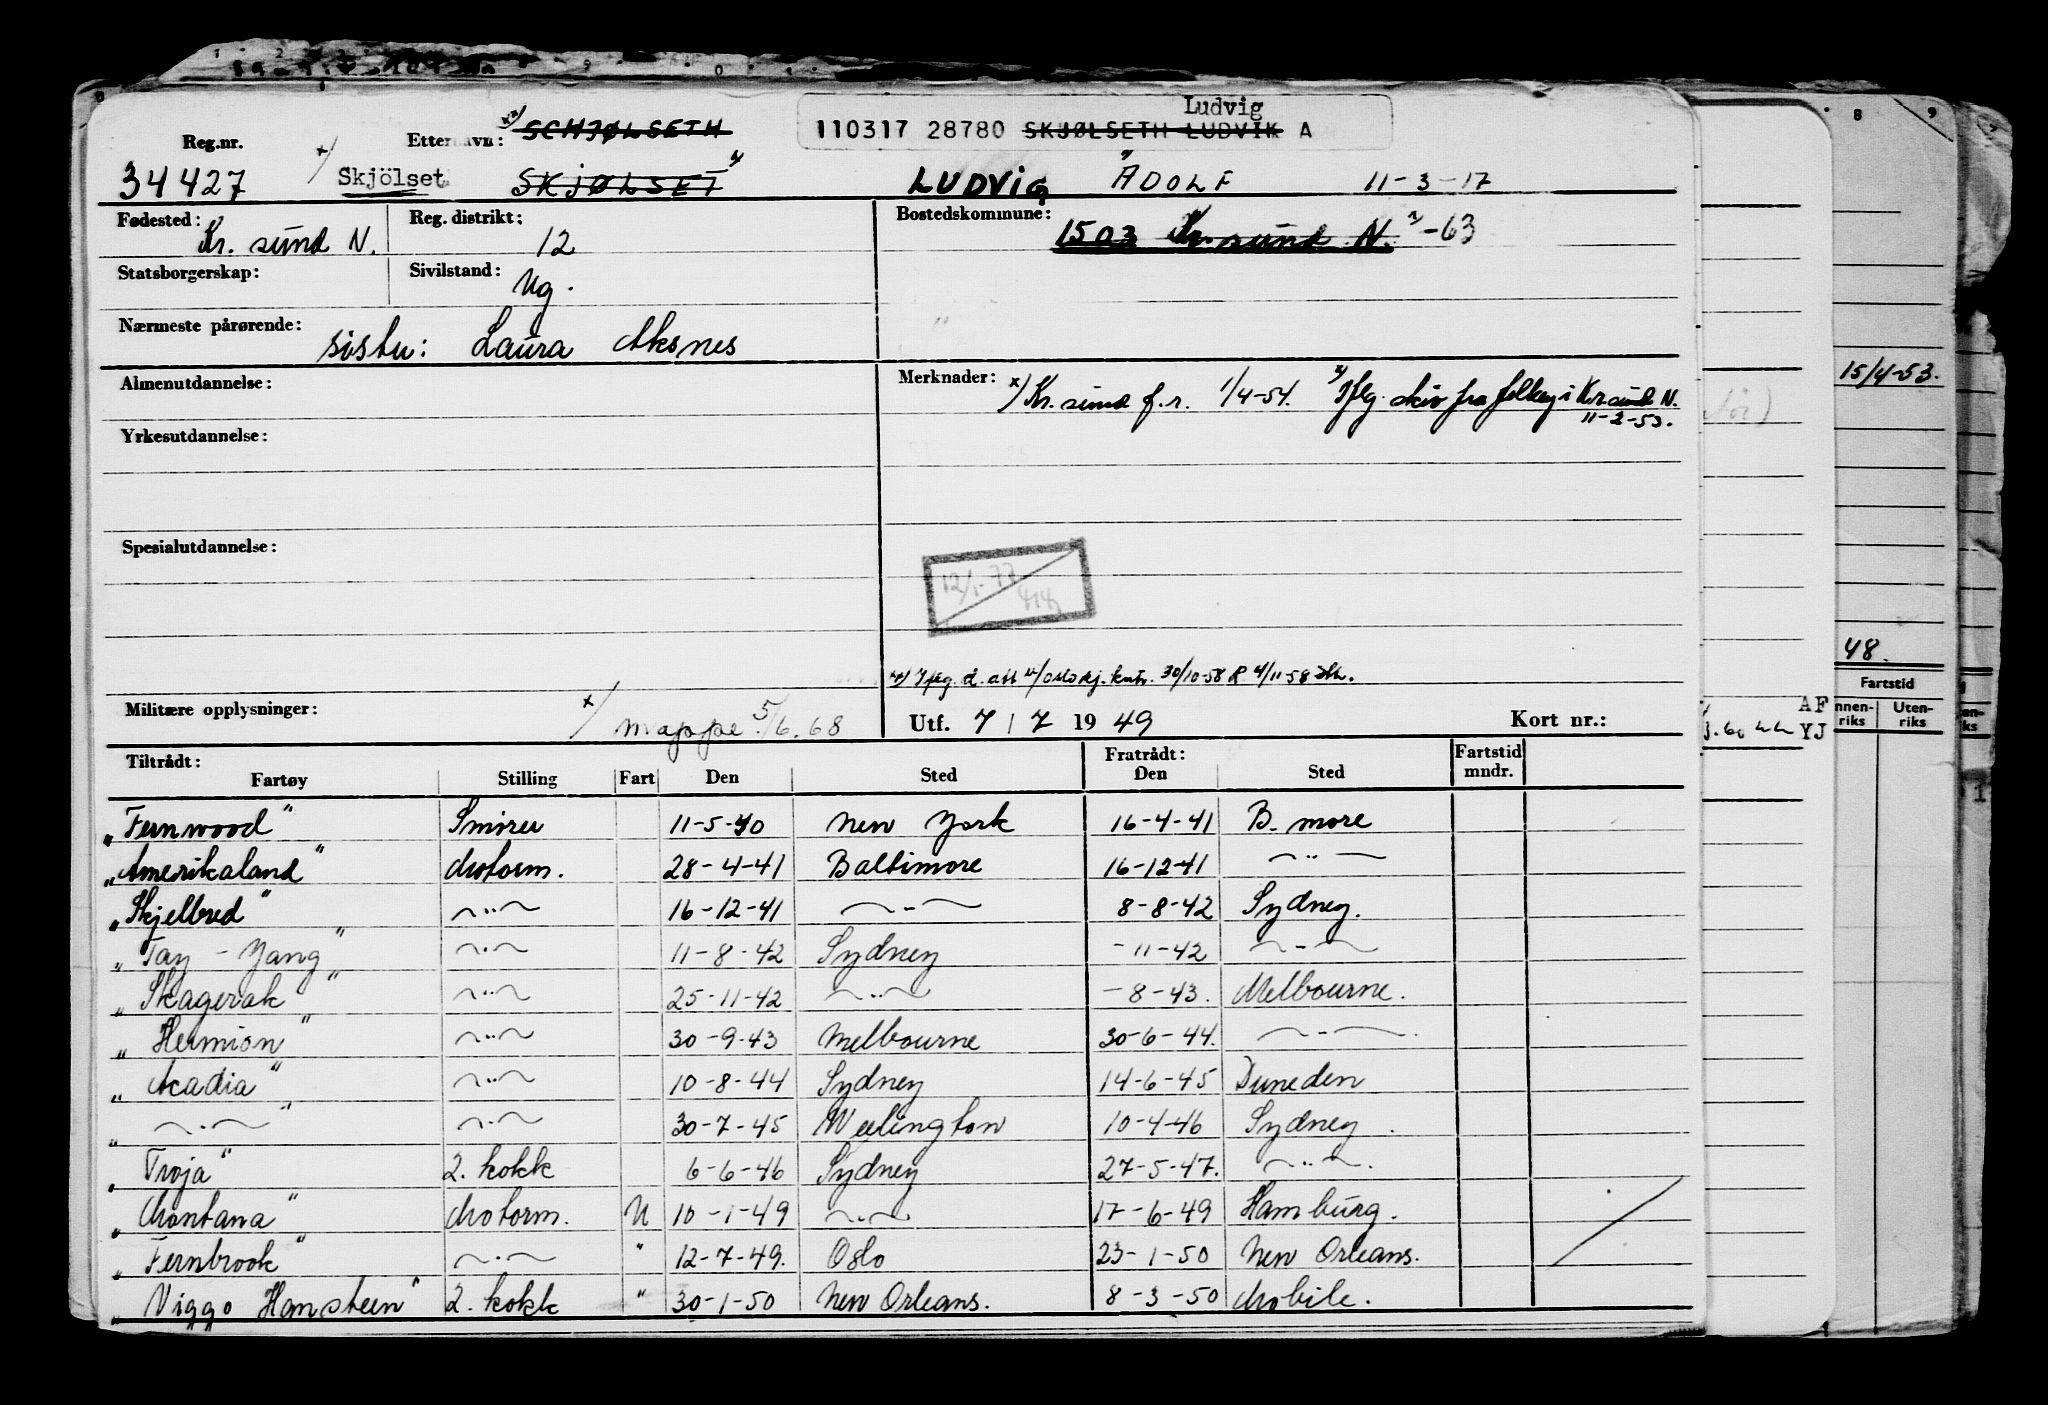 Ludvig
110317 28780 SKJØLSETH LUDVIK A
Reg.nr. Etternavn: SCHJØLSETH
34427 x/ Skjölset SKJØLSET LUDVIG ADOLF 11-3-17
Fødested: Kr. sund N. Reg. distrikt: 12 Bostedskommune: 1503 Kr. sund N. -63
Statsborgerskap: Sivilstand: Ug.
Nærmeste pårørende: sister: Laura Aksnes
Almenutdannelse: Merknader: x/ Kr. sund f.r. 1/4-54. Iflg. skiv fra folkeg i Kr sund N.
11-2-53.
Yrkesutdannelse:
Spesialutdannelse:
12/1-77
Iflg. d. att 30/10-58 4/11-58
Militære opplysninger: x/ mappe 5/6.68 Utf. 7/7 1949 Kort nr.:
Tiltrådt: Fratrådt: Fartstid
Fartøy Stilling Fart Den Sted Den Sted mndr.
"Fernwood" Smører 11-5-40 New York 16-4-41 B. more
"Amerikaland" Motorm. 28-4-41 Baltimore 16-12-41 — " —
"Skjelbred" — " — 16-12-41 — " — 8-8-42 Sydney.
"Tay-Yang" — " — 11-8-42 Sydney -11-42 — " —
"Skagerak" — " — 25-11-42 — " — -8-43. Melbourne.
"Hermion" — " — 30-9-43 Melbourne 30-6-44. — " —
"Acadia" — " — 10-8-44 Sydney 14-6-45 Duneden
" — " — " — " — 30-7-45 Weelington 10-4-46 Sydney.
"Troja" 2. kokk 6-6-46 Sydney 27-5-47. — " —
"Montana" Motorm. U 10-1-49 — " — 17-6-49 Hamburg.
"Fernbrook" — " — " 12-7-49. Oslo 23-1-50 New Orleans.
"Viggo Hansteen" 2. kokk " 30-1-50 New Orleans. 8-3-50 Mobile.
8 9
15/4-53.
48.
Fartstid
Uten-
riks
AF
YJ